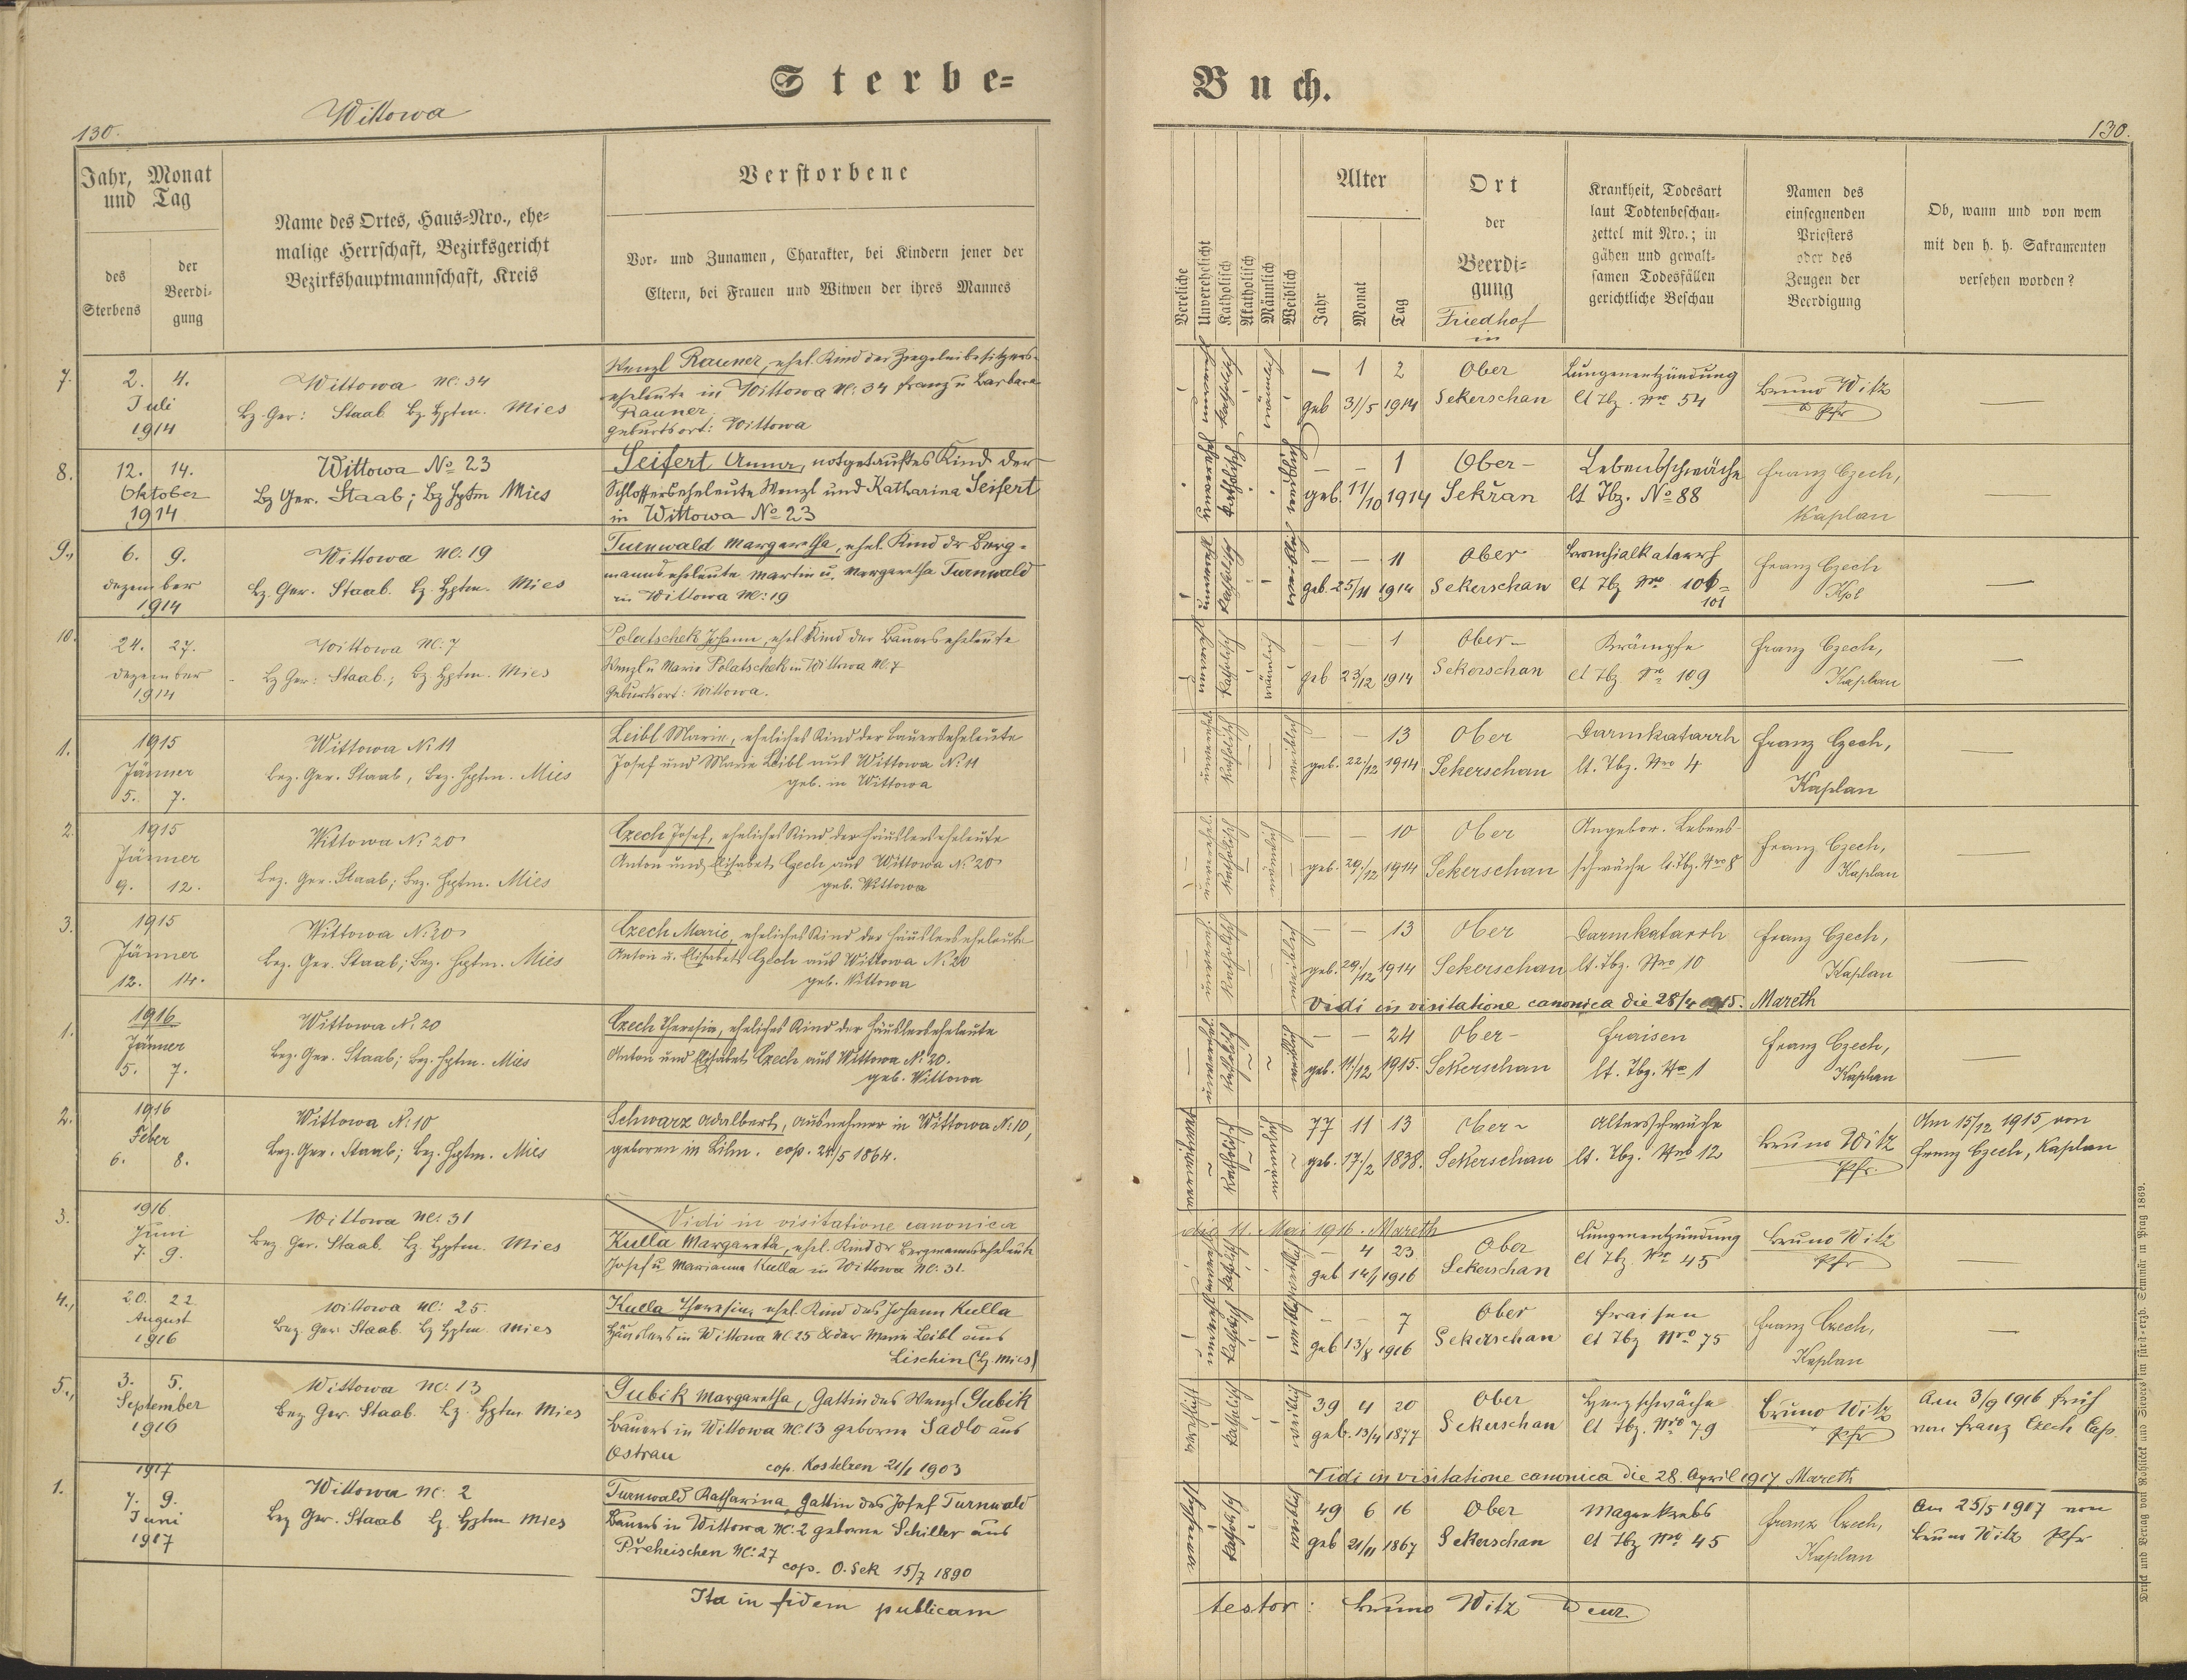 Sterbe=
Buch.
Wittowa
130.
130.
Jahr, Monat
und Tag
des
Sterbens
der
Beerdi-
gung
Name des Ortes, Haus=Nro., ehe=
malige Herrschaft, Bezirksgericht
Bezirkshauptmannschaft, Kreis
Verstorbene
Vor- und Zunamen, Charakter, bei Kindern jener der
Eltern, bei Frauen und Witwen der ihres Mannes
Vereliche
Unverehelicht
Katholisch
Akatholisch
Männlich
Weiblich
Alter
Jahr
Monat
Tag
Ort
der
Beerdi=
gung
Friedhof
in
Krankheit, Todesart
laut Todtenbeschau-
zettel mit Nro.; in
gähen und gewalt-
samen Todesfällen
gerichtliche Beschau
Namen des
einsegnenden
Priesters
oder des
Zeugen der
Beerdigung
Ob, wann und von wem
mit den h. h. Sakramenten
versehen worden?
7. 2. 4.
Juli
1914
Wittowa Nc: 34
Bz. Ger: Staab Bz. Hptm. Mies
Wenzl Rauner, ehel. Kind der Ziegeleibesitzers-
eheleute in Wittowa Nc: 34 Franz u Barbara
Rauner.
Geburtsort: Wittowa
— 1 2
geb 31/5 1914
Ober
Sekerschan
Lungenentzündung
lt Tbz. Nro 54
Bruno Witz
Pfr
—
8. 12. 14.
Oktober
1914
Wittowa No 23
Bz Ger. Staab; Bz Hptm Mies
Seifert Anna, notgetauftes Kind der
Schlosserseheleute Wenzl und Katharina Seifert
in Wittowa No 23
— — 1
geb. 11/10 1914
Ober-
Sekřan
Lebensschwäche
lt Tbz. No 88
Franz Czech,
Kaplan
—
9., 6. 9.
Dezember
1914
Wittowa Nc: 19
Bz. Ger. Staab. Bz. Hptm. Mies
Turnwald Margaretha, ehel. Kind dr Berg-
mannseheleute Martin u. Margaretha Turnwald
in Wittowa Nc: 19
— — 11
geb. 25/11 1914
Ober
Sekerschan
Bronchialkatarrh
lt Tbz Nro 101
Franz Czech
Kpl
—
10. 24. 27.
Dezember
1914
Wittowa Nc: 7
Bz Ger: Staab; Bz. Hptm. Mies
Polatschek Johann, ehel Kind der Bauerseheleute
Wenzl u Marie Polatschek in Wittowa Nc. 7
Geburtsort: Wittowa.
— — 1
geb 23/12 1914
Ober-
Sekerschan
Krämpfe
lt Tbz Nr 109
Franz Czech,
Kaplan
—
1. 1915
Jänner
5. 7.
Wittowa No 11
Bez. Ger. Staab, Bez. Hptm. Mies
Leibl Marie, eheliches Kind der Bauerseheleute
Josef und Marie Leibl aus Wittowa No 11
geb. in Wittowa
— — 13
geb. 22./12 1914
Ober
Sekerschan
Darmkatarrh
lt. Tbz. Nro 4
Franz Czech,
Kaplan
—
2. 1915
Jänner
9. 12.
Wittowa No 20
Bez. Ger. Staab; Bez. Hptm. Mies
Czech Josef, eheliches Kind der Häuslerseheleute
Anton und Elisabet Czech aus Wittowa No 20
geb. Wittowa
— — 10
geb. 29./12 1914
Ober
Sekerschan
Angebor. Lebens-
schwäche lt. Tbz. Nro 8
Franz Czech,
Kaplan
—
3. 1915
Jänner
12. 14.
Wittowa No 20
Bez. Ger. Staab; Bez. Hptm. Mies
Czech Marie, eheliches Kind der Häuslerseheleute
Anton u. Elisabet Czech aus Wittowa No 20
geb. Wittowa
— — 13
geb. 29./12 1914
Ober
Sekerschan
Darmkatarrh
lt. Tbz. Nro 10
Franz Czech,
Kaplan
—
Vidi in visitatione canonica die 28/4 1915. Mareth
1. 1916
Jänner
5. 7.
Wittowa No 20
Bez. Ger. Staab; Bez. Hptm. Mies
Czech Theresia, eheliches Kind der Häuslerseheleute
Anton und Elisabet Czech aus Wittowa No 20.
geb. Wittowa
— — 24
geb. 11./12 1915.
Ober-
Sekerschan
Fraisen
lt. Tbz. Nro 1
Franz Czech,
Kaplan
—
2. 1916
Feber
6. 8.
Wittowa No 10
Bez. Ger. Staab; Bez. Hptm. Mies
Schwarz Adalbert, Ausnehmer in Wittowa No 10,
geboren in Lihn. cop. 24/5 1864.
77 11 13
geb. 17./2 1838.
Ober-
Sekerschan
Altersschwäche
lt. Tbz. Nro 12
Bruno Witz
Pfr.
Am 15/12 1915 von
Franz Czech, Kaplan
Vidi in visitatione canonica
die 11. Mai 1916. Mareth
3. 1916
Juni
7. 9.
Wittowa Nc: 31
Bez Ger. Staab. Bz. Hptm. Mies
Kulla Margareta, ehel. Kind dr Bergmannseheleute
Josef u Marianna Kulla in Wittowa Nc: 31.
— 4 23
geb 14/1 1916
Ober
Sekerschan
Lungenentzündung
lt Tbz. Nro 45
Bruno Witz
Pfr
—
4., 20. 22.
August
1916
Wittowa Nc: 25.
Bez Ger Staab. Bz Hptm. Mies
Kulla Theresia, ehel. Kind des Johann Kulla
Häuslers in Wittowa Nc. 25 & der Marie Leibl aus
Lischin (Bz. Mies)
— — 7
geb 13/8 1916
Ober
Sekerschan
Fraisen
lt Tbz Nro 75
Franz Czech,
Kaplan
—
5., 3. 5.
September
1916
Wittowa Nc: 13
Bez Ger. Staab. Bz. Hptm Mies
Gubik Margaretha, Gattin des Wenzl Gubik
Bauers in Wittowa Nc. 13 geborne Sadlo aus
Ostrau cop. Kostelzen 21/1 1903
39 4 20
geb. 13/4 1877
Ober
Sekerschan
Herzschwäche
lt Tbz. Nro 79
Bruno Witz
Pfr
Am 3/9 1916 früh
von Franz Czech Cap.
Vidi in visitatione canonica die 28. April 1917 Mareth
1. 1917
7. 9.
Juni
1917
Wittowa Nc: 2
Bez Ger. Staab Bz. Hptm Mies
Turnwald Katharina, Gattin des Josef Turnwald
Bauers in Wittowa Nc. 2 geborne Schiller aus
Preheischen Nc: 27
cop. O. Sek 15/7 1890
49 6 16
geb 21/11 1867
Ober
Sekerschan
Magenkrebs
lt Tbz Nro 45
Franz Czech,
Kaplan
Am 25/5 1917 von
Bruno Witz Pfr
Ita in fidem publicam
testor: Bruno Witz
Druck und Verlag von Rohlicek und Sievers im fürst=erzb. Seminär in Prag 1869.